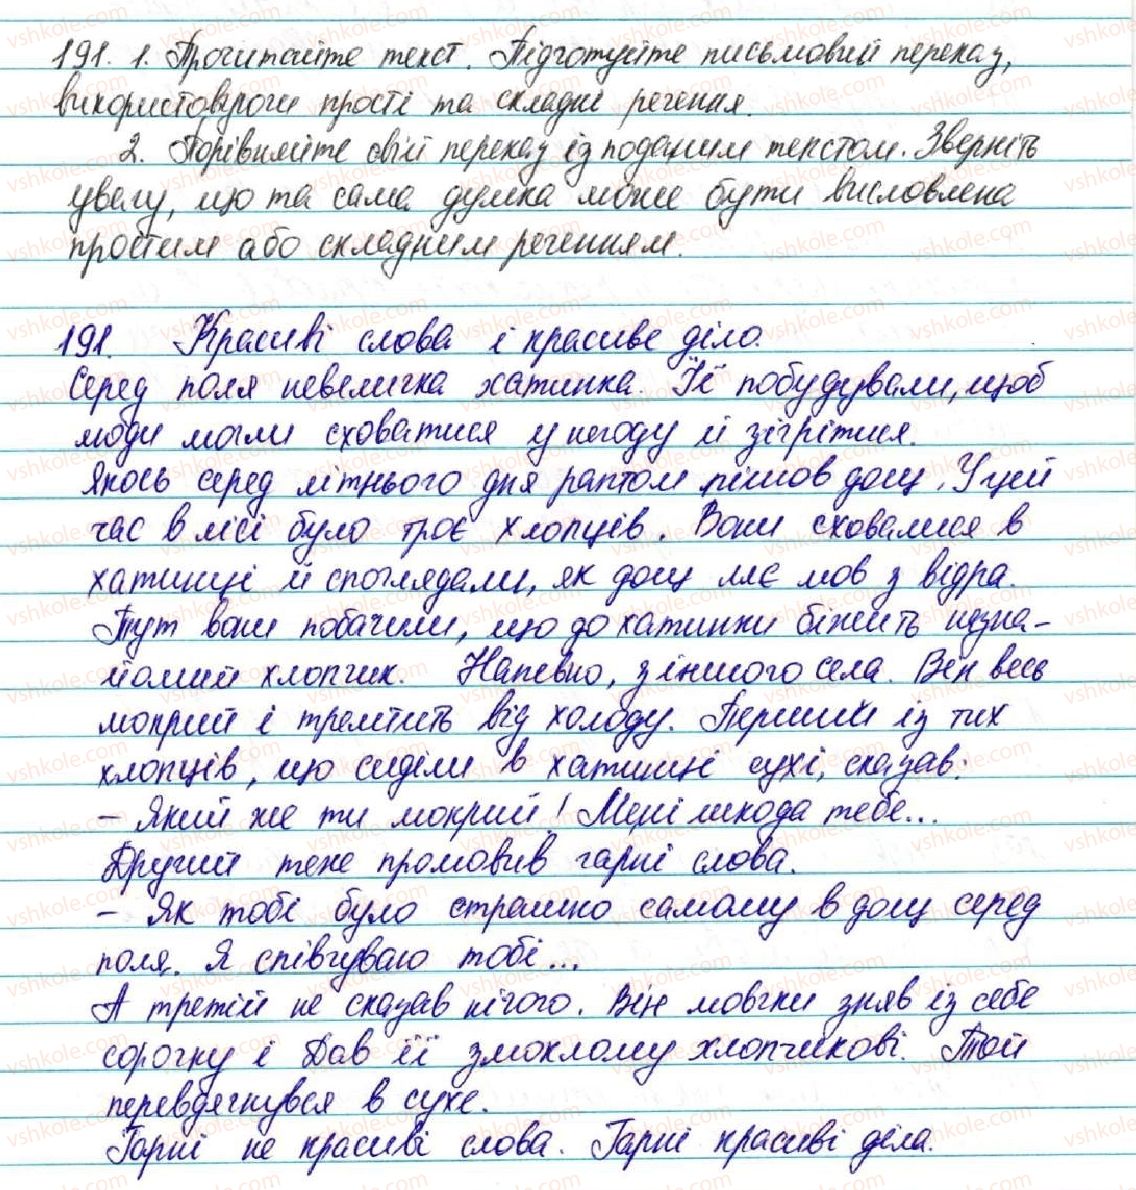 191. 1. Прочитайте текст. Підготуйте письмовий переказ,
використовуючи прості та складні речення.
2. Порівняйте свій переказ із поданим текстом. Зверніть
увагу, що та сама думка може бути висловлена
простим або складним реченням.
191. Красиві слова і красиве діло.
Серед поля невеличка хатинка. Її побудували, щоб
люди могли сховатися у негоду й зігрітися.
Якось серед літнього дня раптом пішов дощ. У цей
час в лісі було троє хлопців. Вони сховалися в
хатинці й споглядали, як дощ ллє мов з відра.
Тут вони побачили, що до хатинки біжить незна-
йомий хлопчик. Напевно, з іншого села. Він весь
мокрий і тремтить від холоду. Перший із тих
хлопців, що сиділи в хатинці сухі, сказав:
- Який же ти мокрий! Мені шкода тебе...
Другий теже промовив гарні слова.
- Як тобі було страшно самому в дощ серед
поля. Я співчуваю тобі...
А третій не сказав нічого. Він мовчки зняв із себе
сорочку і Дав її змоклому хлопчикові. Той
перевдягнувся в сухе.
Гарні не красиві слова. Гарні красиві діла.